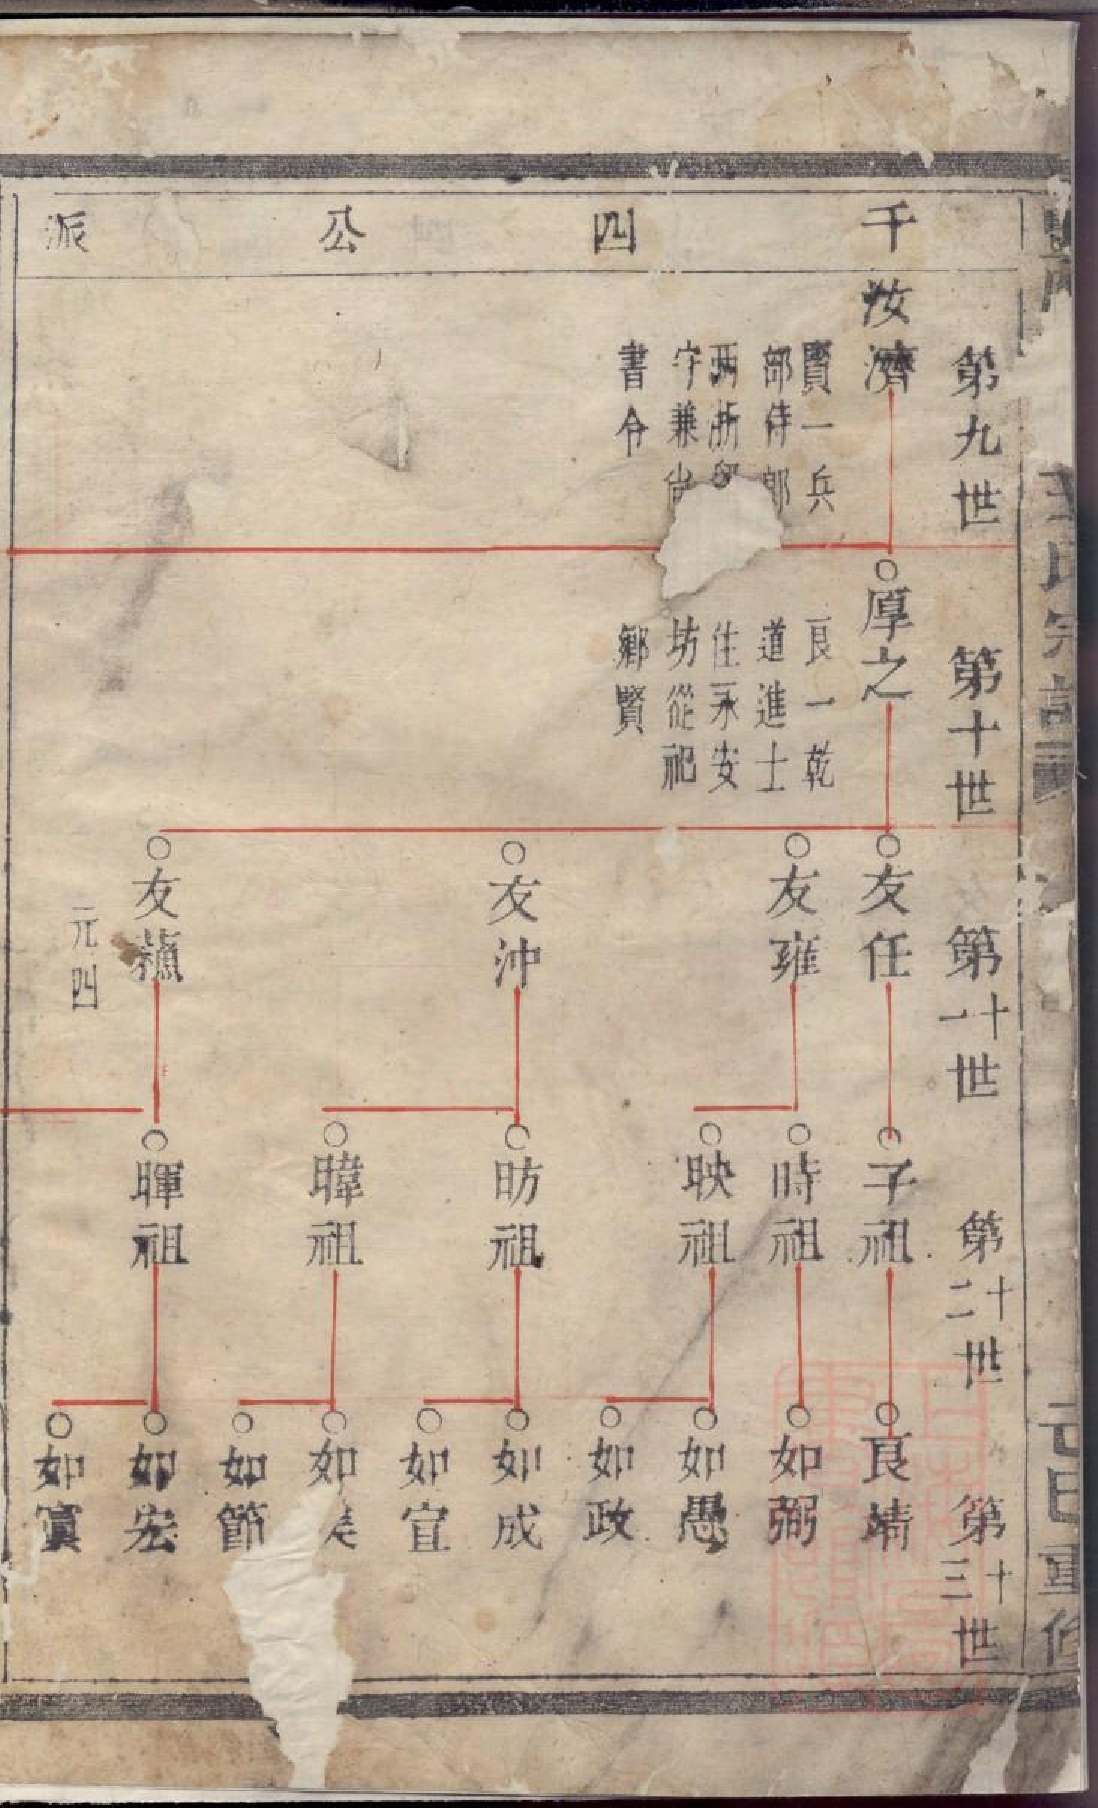 千四公派
第九世
汝濟
賢一兵
部侍郎
兩浙
守兼尚
書令
第十世
厚之
良一乾
道進士
住永安
坊從祀
鄉賢
第十一世
友任
友雍
友沖
友蘓
元四
第十二世
子祖
時祖
映祖
昉祖
暐祖
暉祖
第十三世
良靖
如弼
如愚
如政
如成
如宜
如
如節
如宏
如寘
王氏宗譜
己巳重修